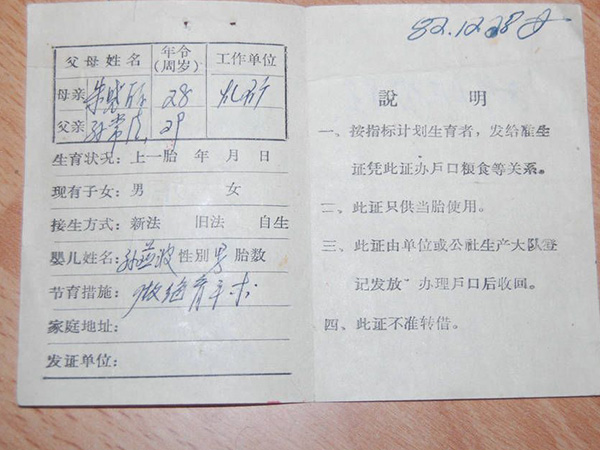 父母姓名 年令(周岁) 工作单位
母亲 朱 28
父亲 孙 29
生育状况：上一胎 年 月 日
现有子女：男 女
接生方式：新法 旧法 自生
婴儿姓名：孙 波 性別 男 胎数
节育措施：做绝育手术
家庭地址：
发证单位：
82.12.28
說 明
一、按指标计划生育者，发给准生
证凭此证办戶口粮食等关系。
二、此证只供当胎使用。
三、此证由单位或公社生产大队登
记发放 办理戶口后收回。
四、此证不准转借。